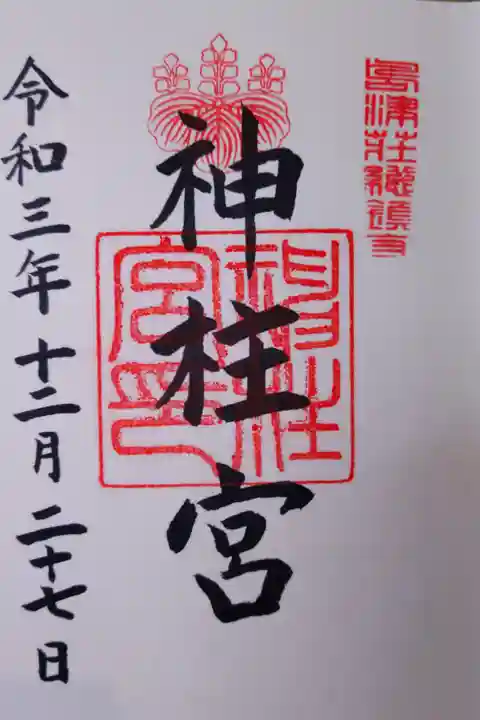 島津荘総鎮守
神柱宮
神柱宮印
令和三年十二月二十七日